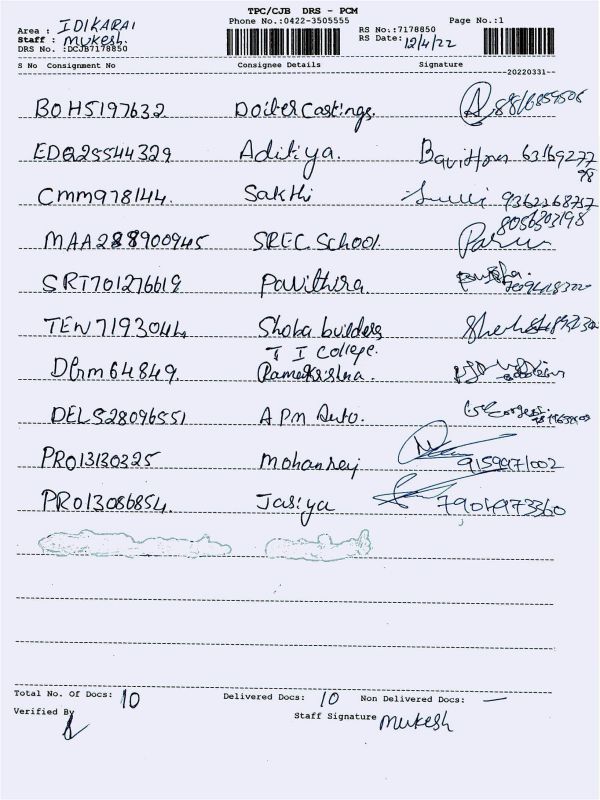 TPC/CJB DRS - PCM
Area : IDIKARAI Phone No.:0422-3505555 Page No.:1
Staff : Mukesh. RS No.:7178850
DRS No. :DCJB7178850 RS Date: 12/4/22
S No Consignment No Consignee Details Signature
--20220331--
BOH5197632 Doiter Castings.
EDQ25544329 Aditiya. 63169277
78
CMM978144. Sakthi 9362268757
8056303198
MAA288900945 SREC School.
SRT701276619 Pavithra.
TEN 7193044 Shoba builders
T I College.
64849. Ramakrishna.
DEL528096551 APM Auto.
PRO13130325 Mohanraj
PRO13086854. Jasiya 7904973360
Total No. Of Docs: 10 Delivered Docs: 10 Non Delivered Docs: —
Verified By Staff Signature Mukesh